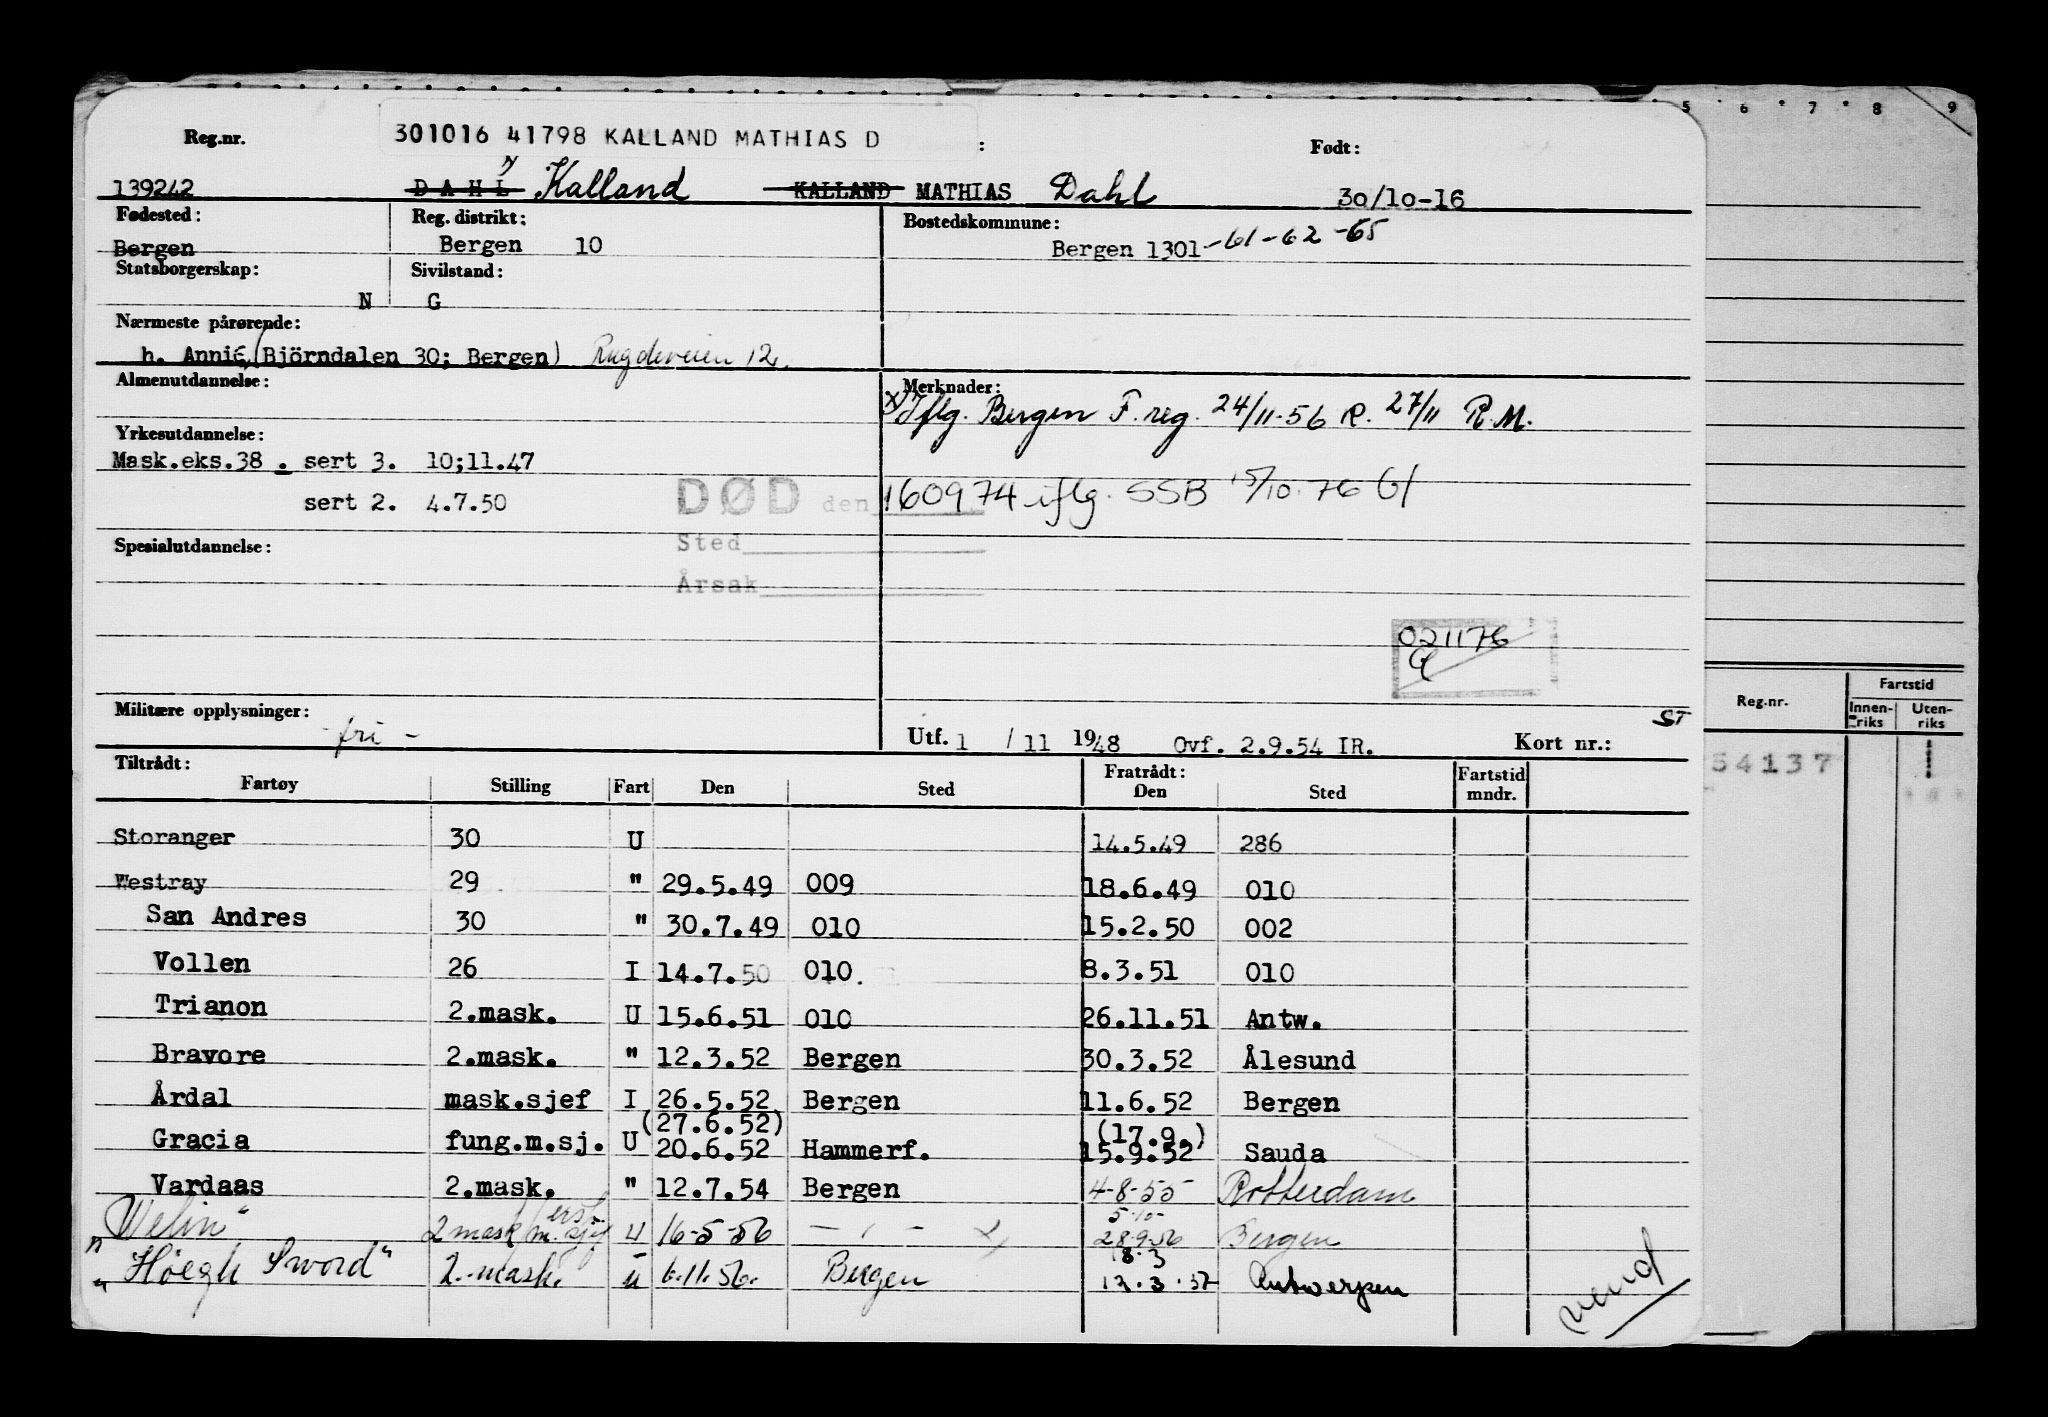 5 6 7 8 9
301016 41798 KALLAND MATHIAS D
Reg.nr. : Født:
139242 DAHL Kalland KALLAND MATHIAS Dahl 30/10-16
Fødested: Reg. distrikt: Bostedskommune:
Bergen Bergen 10 Bergen 1301 -61-62-65
Statsborgerskap: Sivilstand:
N G
Nærmeste pårørende:
h. Annie, (Björndalen 30; Bergen) Rugdeveien 12.
Almenutdannelse: Merknader:
x Iflg. Bergen F. reg. 24/11-56 R. 27/11 R.M.
Yrkesutdannelse:
Mask.eks.38 . sert 3. 10;11.47
sert 2. 4.7.50 DØD den 160974 iflg. SSB 15/10.76
Spesialutdannelse: Sted
Årsak
021176
Militære opplysninger: ST
- fri - Utf. 1 / 11 1948 Ovf. 2.9.54 IR. Kort nr.:
Reg.nr. Fartstid
Innen-riks Uten-riks
54137
Tiltrådt: Fratrådt:
Fartøy Stilling Fart Den Sted Den Sted Fartstid mndr.
Storanger 30 U 14.5.49 286
Westray 29 " 29.5.49 009 18.6.49 010
San Andres 30 " 30.7.49 010 15.2.50 002
Vollen 26 I 14.7.50 010. 8.3.51 010
Trianon 2.mask. U 15.6.51 010 26.11.51 Antw.
Bravore 2.mask. " 12.3.52 Bergen 30.3.52 Ålesund
Årdal mask.sjef I 26.5.52 Bergen 11.6.52 Bergen
(27.6.52) (17.9.)
Gracia fung.m.sj. U 20.6.52 Hammerf. 15.9.52 Sauda
Vardaas 2.mask. " 12.7.54 Bergen 4-8-55 Rotterdam
5-10-
"Welin" 2 mask/m.sjef U 16-5-56 — " — 28.9.56 Bergen
8.3
"Höegh Sword" 2.mask. u 6.11.56. Bergen 12.3.57 Antwerpen
vend